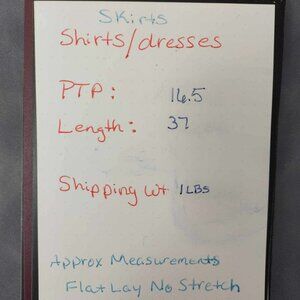 SKirts
Shirts/dresses
PTP: 16.5
Length: 37
Shipping wt 1LBS
Approx Measurements
Flat Lay No Stretch